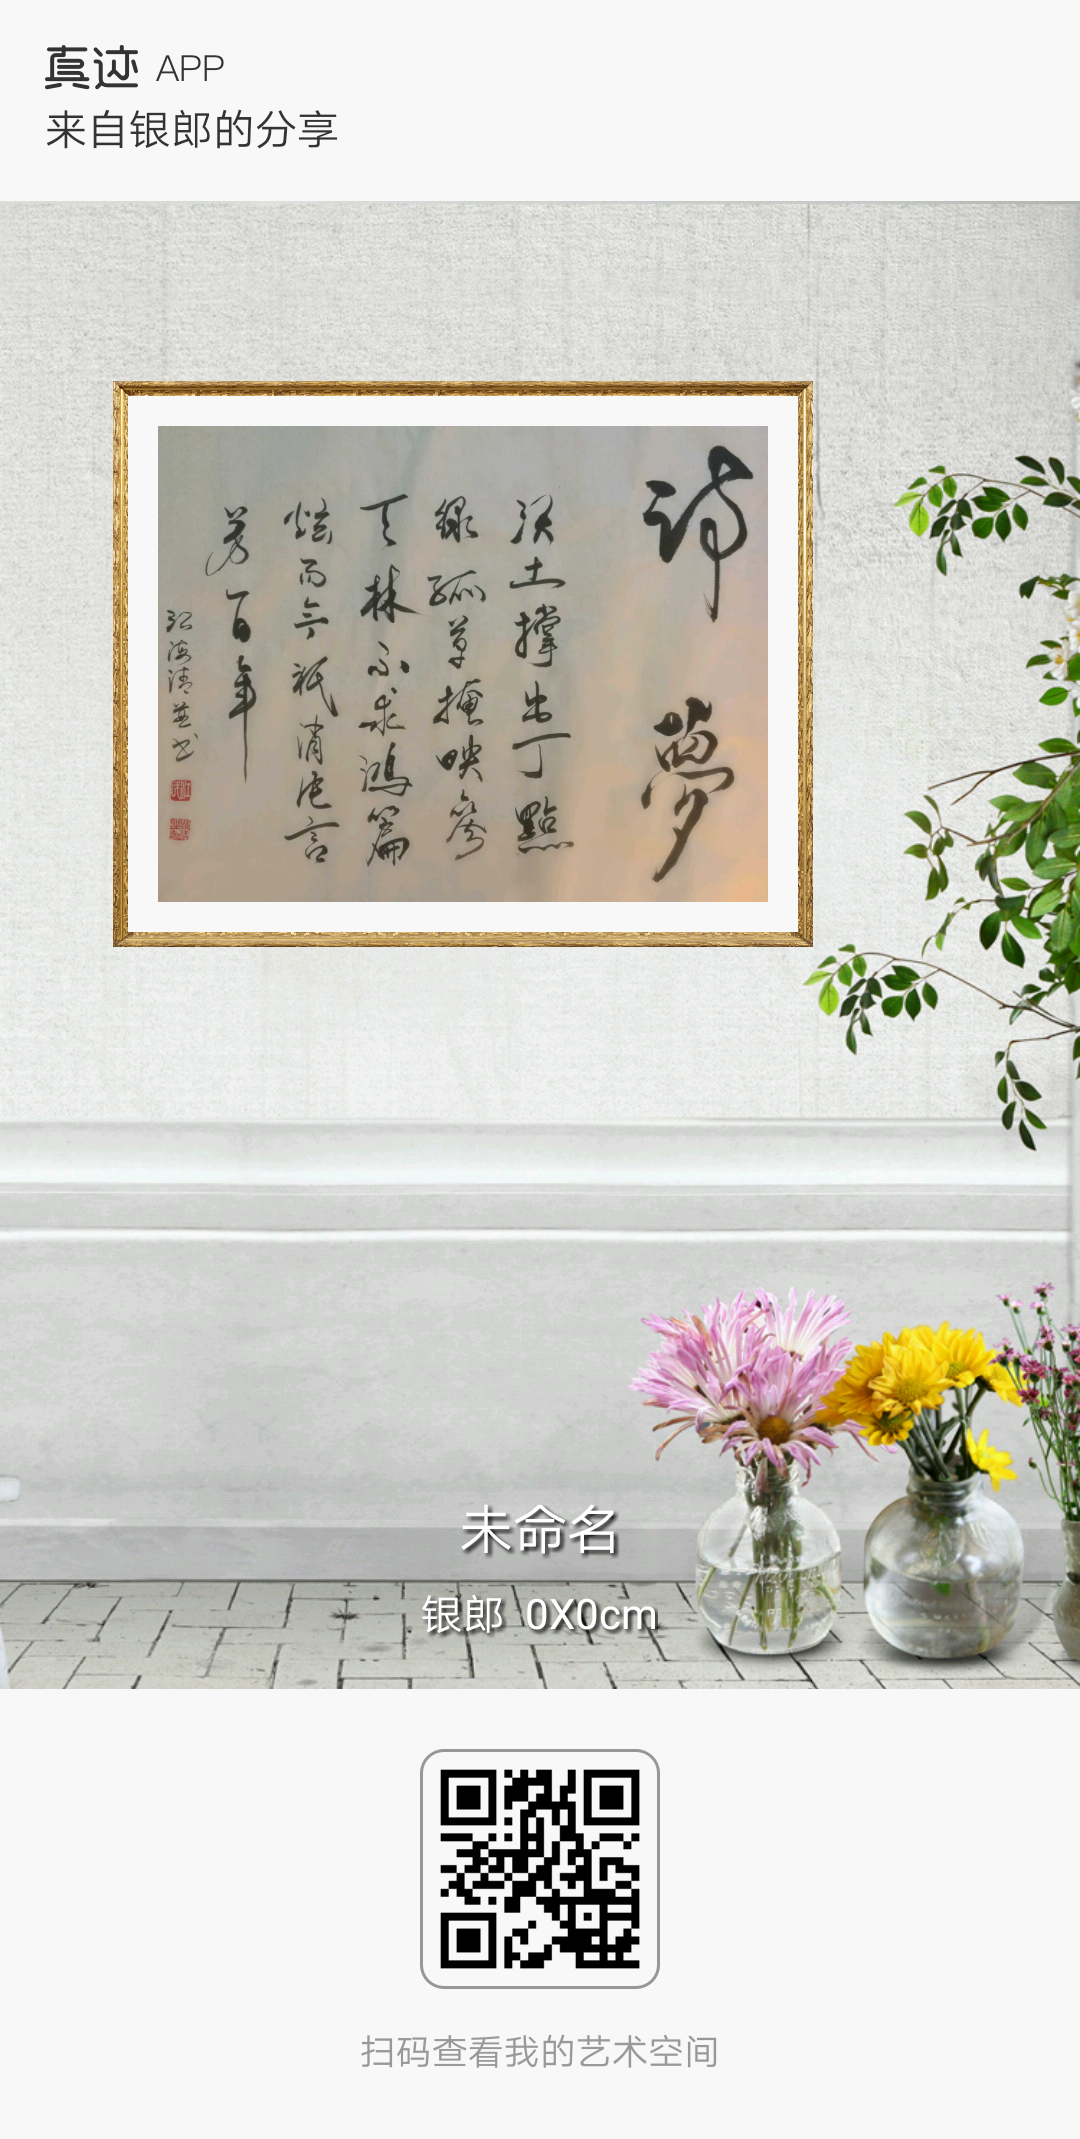 真迹 APP
来自银郎的分享
詩夢
沃土撑出丁點
綠孤草掩映奪
天林不求鴻篇
炫而今祇消片言
芳百年
江海清并书
未命名
银郎 0X0cm
扫码查看我的艺术空间